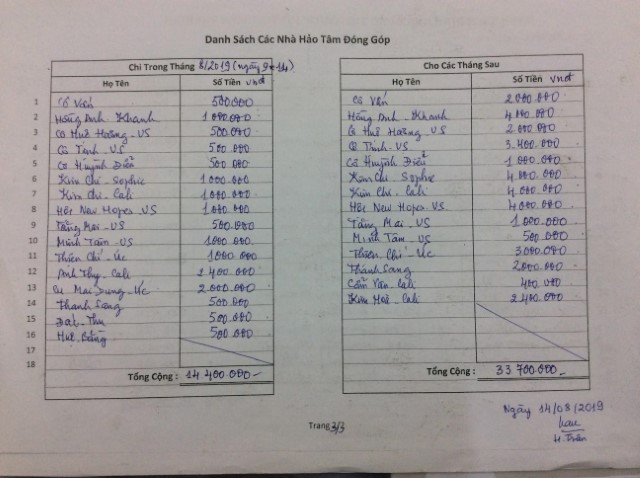 Danh Sách Các Nhà Hảo Tâm Đóng Góp
Chi Trong Tháng 8/2019 (ngày 9 14)
Họ Tên Số Tiền vnđ
1 Cô Vân 500.000
2 Hồng Anh - Khanh 1.000.000
3 Cô Huê Hoàng - US 500.000
4 Cô Trinh - US 500.000
5 Cô Huỳnh Điểu 500.000
6 Kim Chi - Sophie 1.000.000
7 Kim Chi - Cali 1.000.000
8 Hội New Hopes - US 1.000.000
9 Tăng Mai - US 500.000
10 Minh Tâm - US 1.000.000
11 Thiên Chí - Úc 1.000.000
12 Anh Thy - Cali 2.400.000
13 Mai Dung - Úc 2.000.000
14 Thanh Sang 500.000
15 500.000
16 Huê 500.000
17
18
Tổng Cộng : 14.400.000 -
Cho Các Tháng Sau
Họ Tên Số Tiền vnđ
Cô Vân 2.000.000
Hồng Anh - Khanh 4.000.000
Cô Huê Hoàng - US 2.000.000
Cô Trinh - US 3.400.000
Cô Huỳnh Điểu 1.000.000
Kim Chi - Sophie 4.000.000
Kim Chi - Cali 4.000.000
Hội New Hopes - US 4.000.000
Tăng Mai - US 1.000.000
Minh Tâm - US 500.000
Thiên Chí - Úc 3.000.000
Thanh Sang 2.000.000
Cẩm Vân - Cali 400.000
Kim Hoà - Cali 2.400.000
Tổng Cộng : 33.700.000 -
Trang 3/3
Ngày 14/08/2019